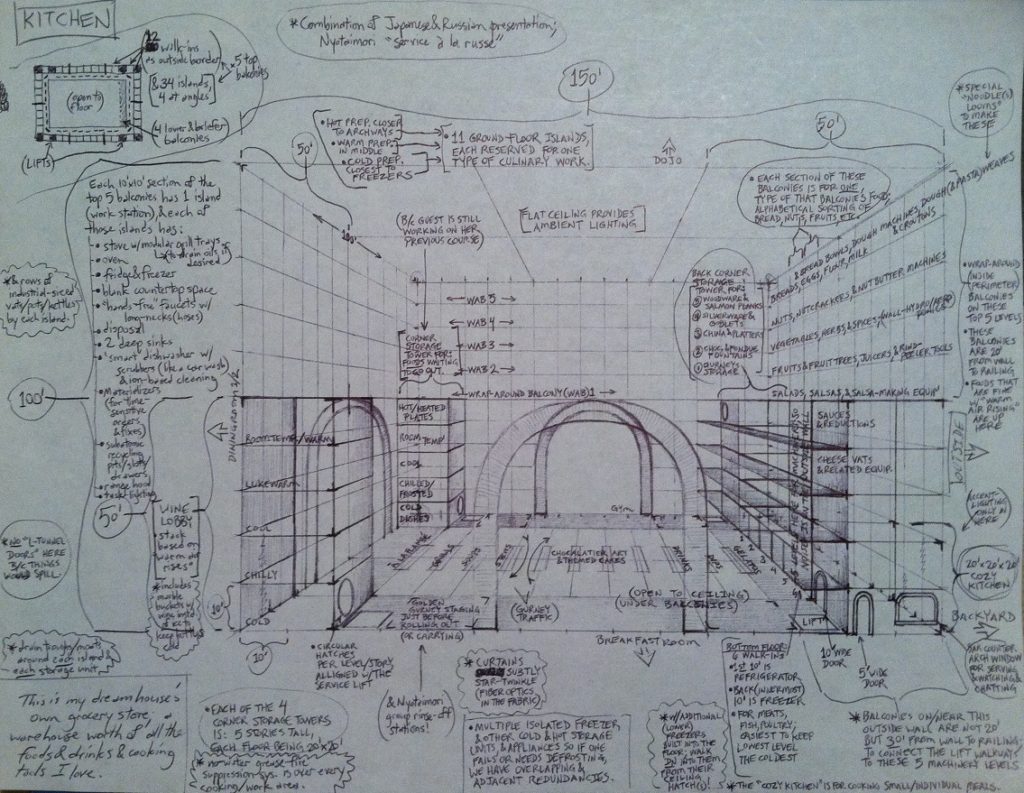 KITCHEN
*Combination of Japanese & Russian presentation;
Nyotaimori "service à la russe"
12
walk-ins
as outside border,
& 34 islands,
4 at angles
*5 top
balconies
(open to
floor)
(4 lower & briefer
balconies)
(LIFTS)
150'
50'
50'
• HOT PREP, CLOSER
TO ARCHWAYS
• WARM PREP,
IN MIDDLE
• COLD PREP,
CLOSEST TO
FREEZERS
• 11 GROUND-FLOOR ISLANDS,
EACH RESERVED FOR ONE
TYPE OF CULINARY WORK.
DOJO
*SPECIAL
"NOODLE(S)
LOOMS"
TO MAKE
THESE
Each 10'x10' section of the
top 5 balconies has 1 island
(work station), & each of
those islands has:
• stove w/ modular grill trays
(*to drain oils if
desired
• oven
• fridge & freezer
• blank countertop space
• "hand-free" faucets w/
long-necks (hoses)
• disposal
• 2 deep sinks
• "smart" dishwasher w/
scrubbers (like a car wash)
& ion-based cleaning
• Materializers
(for time-
sensitive
orders
& fixes)
• subatomic
recycling
pits/slots/
drawers
• range hood
• task-lighting
*& rows of
industrial-sized
vats/pots/kettles
by each island.
B/C GUEST IS STILL
WORKING ON HER
PREVIOUS COURSE
100'
FLAT CEILING PROVIDES
AMBIENT LIGHTING
• EACH SECTION OF THESE
BALCONIES IS FOR ONE
TYPE OF THAT BALCONIES FOOD;
ALPHABETICAL SORTING OF
BREAD, NUTS, FRUITS ETC.
& BREAD BOWLS, DOUGH MACHINES, DOUGH (& PASTA) WEAVES
BREADS, EGGS, FLOUR, MILK
& CROUTONS
NUTS, NUTCRACKERS, & NUT BUTTER MACHINES
VEGETABLES, HERBS, & SPICES
FRUITS & FRUIT TREES, JUICERS, & RIND-
PEELER TOOLS
SALADS, SALSAS, & SALSA-MAKING EQUIP.
BACK CORNER
STORAGE
TOWER FOR:
⑤ WOODWARE &
SALMON PLANKS
④ SILVERWARE &
GOBLETS
③ CHINA & PLATTERS
② CHOC. & FONDUE
FOUNTAINS
① GURNEYS
STORAGE
• WRAP-AROUND
(INSIDE
PERIMETER)
BALCONIES
ON THESE
TOP 5 LEVELS
• THESE
BALCONIES
ARE 20'
FROM WALL
TO RAILING
• FOODS THAT
ARE FINE
W/ "WARM
AIR RISING"
ARE UP
HERE
WAB 5
WAB 4
WAB 3
WAB 2
WRAP-AROUND BALCONY (WAB) 1
CORNER
STORAGE
TOWER FOR:
FOODS WAITING
TO GO OUT.
100'
DININGROOM 1/2
ROOM TEMP/WARM
LUKEWARM
COOL
CHILLY
COLD
HOT/HEATED
PLATES
ROOM TEMP
COOL
CHILLED/
FROSTED
COLD
DISHES
SAUCES
& REDUCTIONS
CHEESE VATS
& RELATED EQUIP.
OUTSIDE
GYM
CHOCOLATIER ART
& THEMED CAKES
50'
WINE
LOBBY
• stack
based on
"warm air
rises"
*includes
marble
buckets w/
& ice to
keep bottles
cold
*NO "L-TUNNEL
DOORS" HERE
B/C THINGS
WOULD SPILL.
10'
10'
GOLDEN
GURNEY STAGING
JUST BEFORE
ROLLING OUT
(OR CARRYING)
(GURNEY
TRAFFIC)
(OPEN TO CEILING)
(UNDER BALCONIES)
BREAKFAST ROOM
LIFT
ACCENT-
LIGHTING
ONLY IN
HERE
20'x20'x20'
COZY
KITCHEN
BACKYARD
10' WIDE
DOOR
5' WIDE
DOOR
BAR COUNTER
ARCH WINDOW
FOR SERVING
& WATCHING &
CHATTING
*drain troughs/moats
around each island &
each storage unit.
• CIRCULAR
HATCHES
PER LEVEL/STORY
ALLIGNED W/ THE
SERVICE LIFT
This is my dreamhouse's
own grocery store, a
warehouse worth of all the
foods & drinks & cooking
tools I love.
• EACH OF THE 4
CORNER STORAGE TOWERS
IS: 5 STORIES TALL,
EACH FLOOR BEING 20'x20'
*no-water grease-fire
suppression-sys. is over every
cooking/work area.
& Nyotaimori
group rinse-off
stations!
*CURTAINS
SUBTLY
STAR-TWINKLE
(FIBER OPTICS
IN THE FABRIC).
• MULTIPLE ISOLATED FREEZER,
& OTHER COLD & HOT STORAGE
UNITS, & APPLIANCES SO IF ONE
FAILS OR NEEDS DEFROSTING,
WE HAVE OVERLAPPING &
ADJACENT REDUNDANCIES.
BOTTOM FLOOR:
6 WALK-INS
• 1ST 10' IS
REFRIGERATOR
• BACK (INNERMOST)
10' IS FREEZER
• FOR MEATS,
FISH, POULTRY;
EASIEST TO KEEP
LOWEST LEVEL
THE COLDEST
*W/ ADDITIONAL
(LOWER)
FREEZERS
BUILT INTO THE
FLOOR; WALK
DN INTO THEM
FROM THEIR
CEILING
HATCH(S)!
*BALCONIES ON/NEAR THIS
OUTSIDE WALL ARE NOT 20'
BUT 30' FROM WALL TO RAILING
TO CONNECT THE LIFT WALKWAY
TO THESE 5 MACHINERY LEVELS
*THE "COZY KITCHEN" IS FOR COOKING SMALL/INDIVIDUAL MEALS.